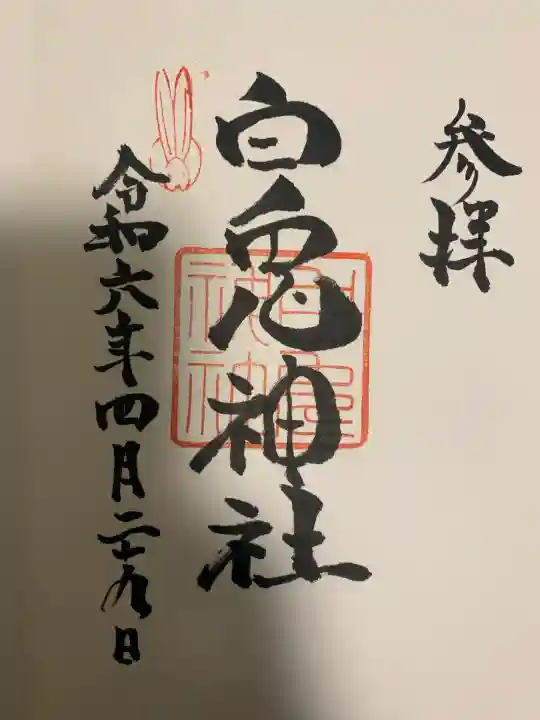 参拝
白兎神社
令和六年四月二十九日